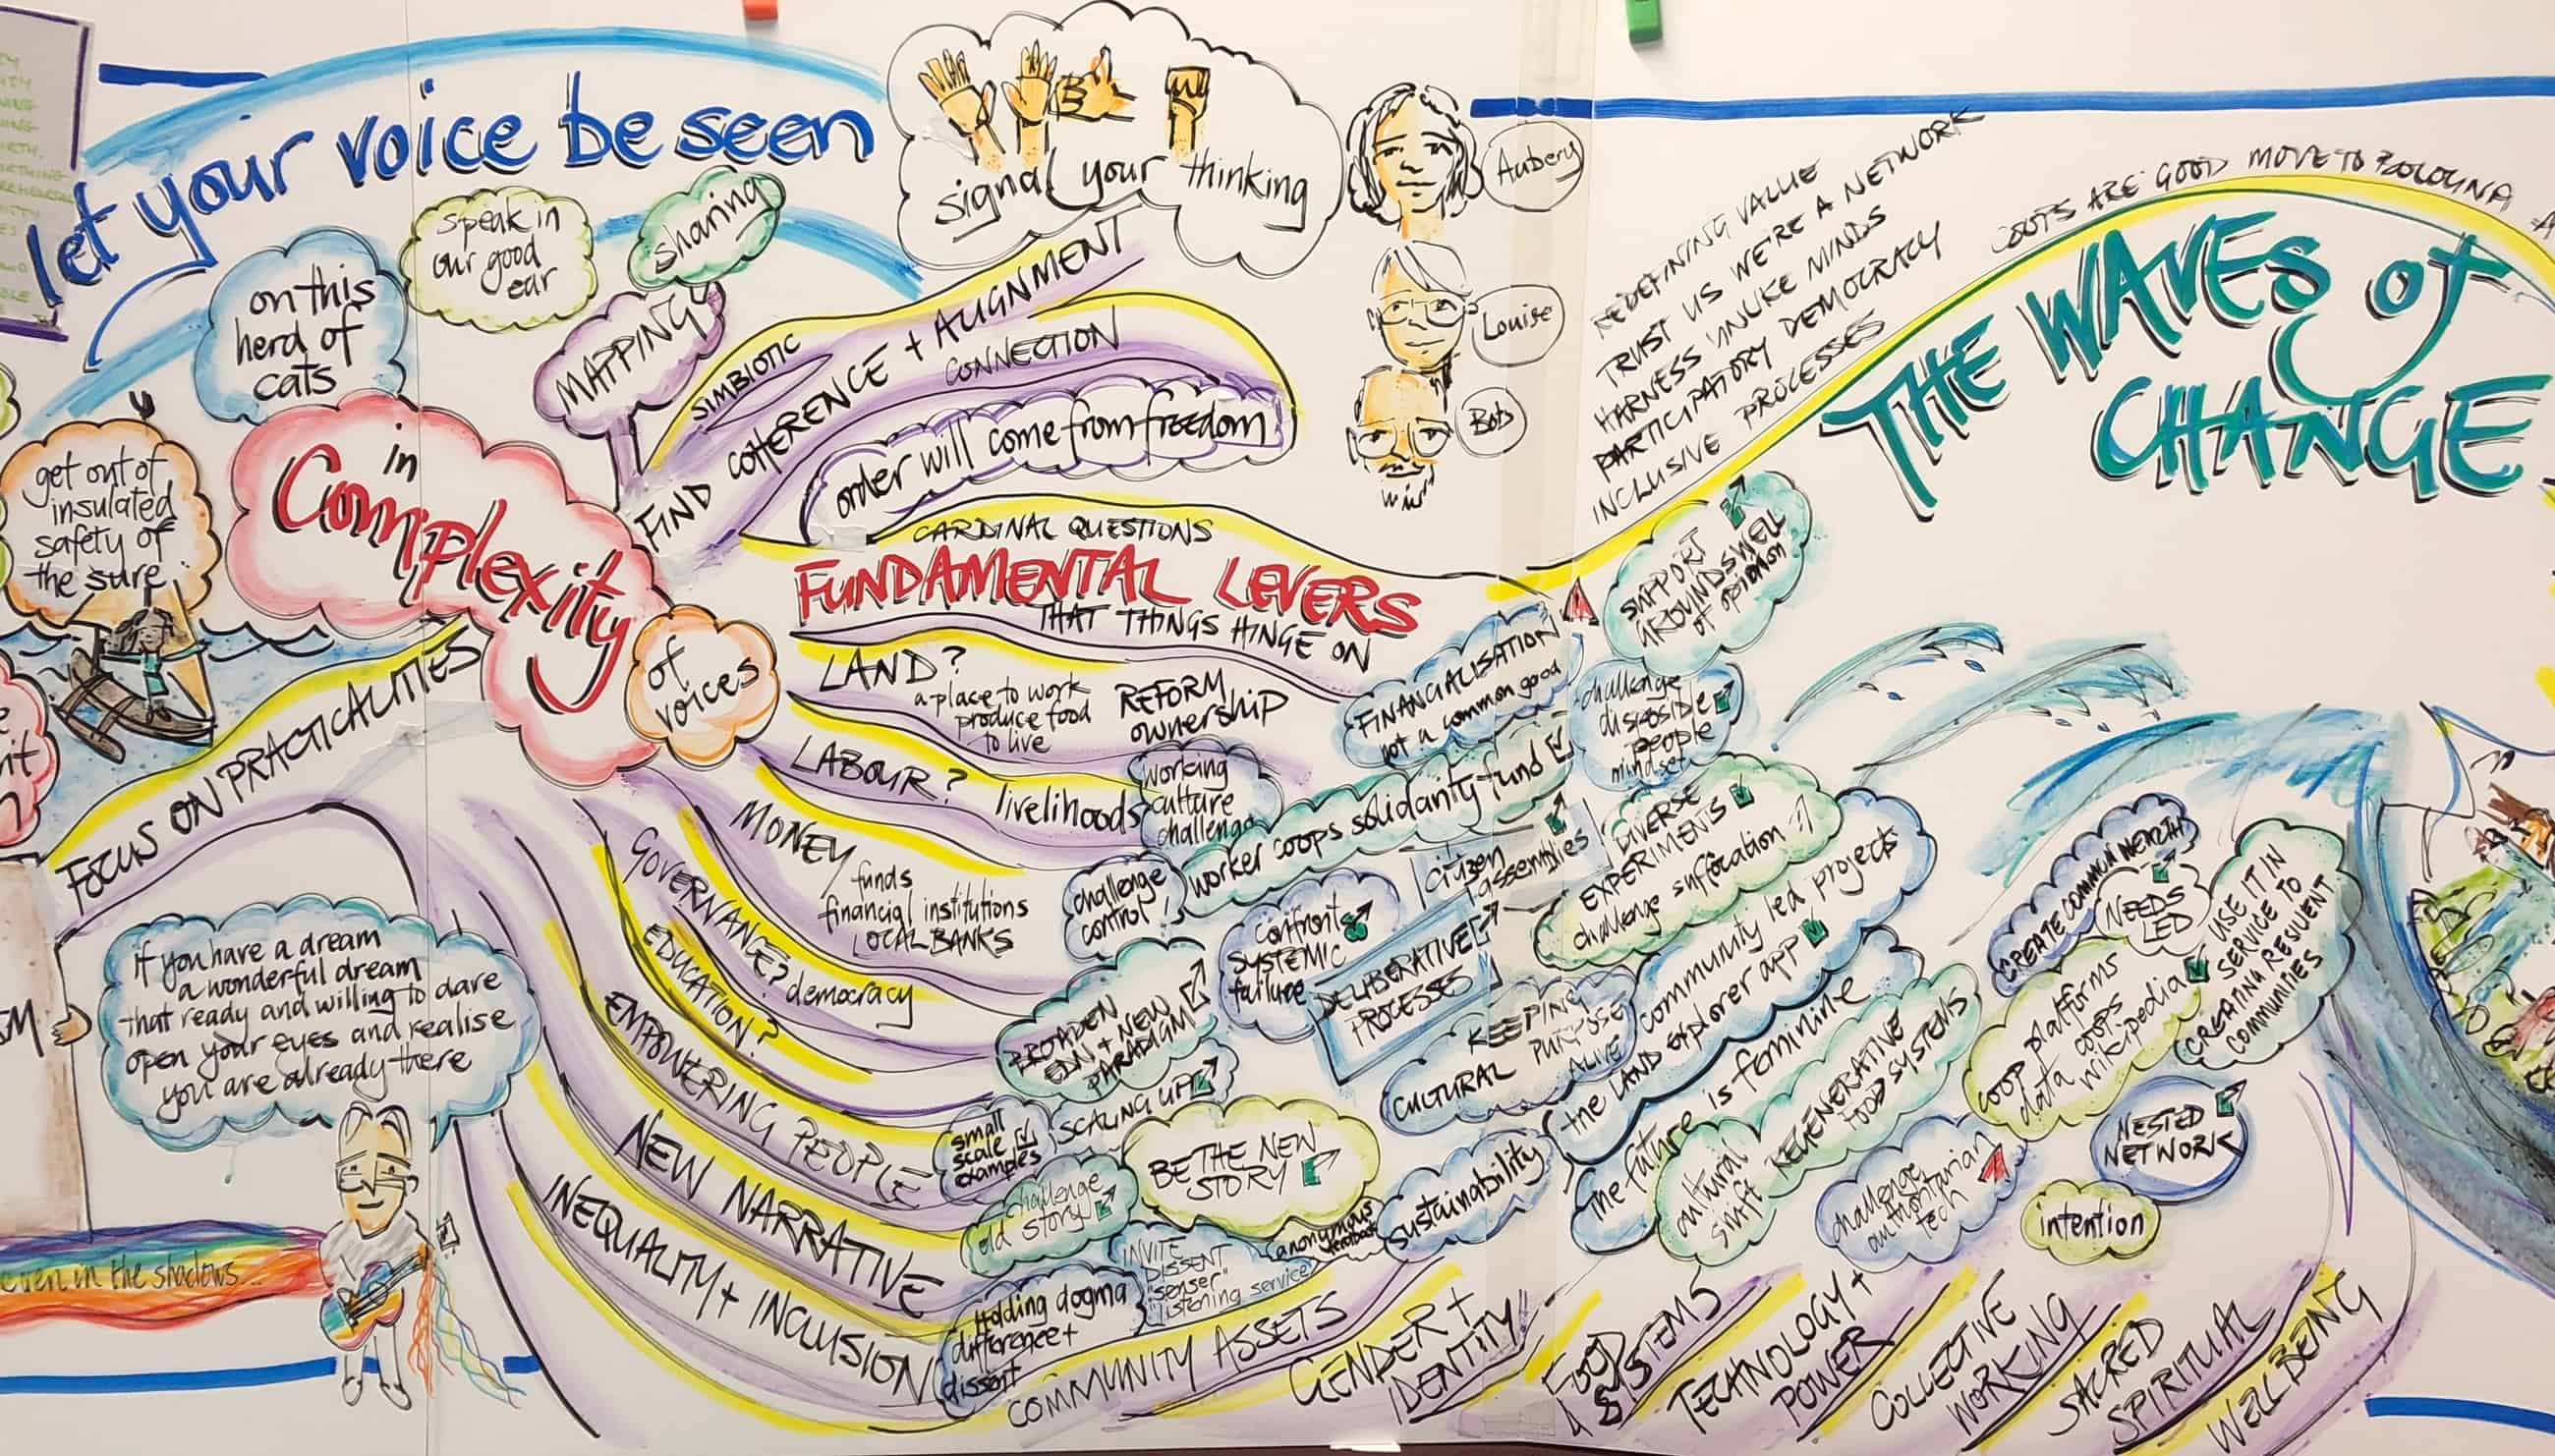 let your voice be seen
signal your thinking
Aubery
Louise
Bots
on this
herd of
cats
speak in
our good
ear
sharing
MAPPING
in
Complexity
of
voices
get out of
insulated
safety of
the sure
FOCUS ON PRACTICALITIES
SIMBIOTIC
FIND COHERENCE + ALIGNMENT
CONNECTION
order will come from freedom
CARDINAL QUESTIONS
FUNDAMENTAL LEVERS
THAT THINGS HINGE ON
LAND?
a place to work
produce food
to live
REFORM
ownership
FINANCIALISATION
not a common good
LABOUR?
livelihoods
working
culture
challenge
worker coops solidarity fund
MONEY
funds
financial institutions
LOCAL BANKS
challenge
control!
GOVERNANCE?
democracy
confront
SYSTEMIC
failure
citizen
assemblies
DELIBERATIVE
PROCESSES
EDUCATION?
BROADEN
EDN + NEW
PARADIGM
EMPOWERING PEOPLE
small
scale
examples
SCALING UP
NEW NARRATIVE
challenge
old story
BE THE NEW
STORY
INEQUALITY + INCLUSION
Holding dogma
difference +
dissent
INVITE
DISSENT
"senser"
"listening service"
anonymous
feedback
COMMUNITY ASSETS
sustainability
GENDER +
IDENTITY
KEEPING
PURPOSE
ALIVE
CULTURAL
if you have a dream
a wonderful dream
that ready and willing to dare
open your eyes and realise
you are already there
even in the shadows...
REDEFINING VALUE
TRUST US WE'RE A NETWORK
HARNESS UNLIKE MINDS
PARTICIPATORY DEMOCRACY
INCLUSIVE PROCESSES
COOTS ARE GOOD MOVE TO BOLOGNA
THE WAVES of
CHANGE
SUPPORT
GROUNDSWELL
of opinion
challenge
dispossible
people
mindset
DIVERSE
EXPERIMENTS
challenge suffocation
community led projects
the LAND explorer app
the future is feminine
cultural
shift
REGENERATIVE
FOOD SYSTEMS
challenge
authoritarian
tech
CREATE COMMON WEALTH
NEEDS
LED
USE IT IN
SERVICE TO
CREATING RESILIENT
COMMUNITIES
coop platforms
data coops
wikipedia
NESTED
NETWORK
intention
FOOD
SYSTEMS
TECHNOLOGY +
POWER
COLLECTIVE
WORKING
SACRED
SPIRITUAL
WELL BEING